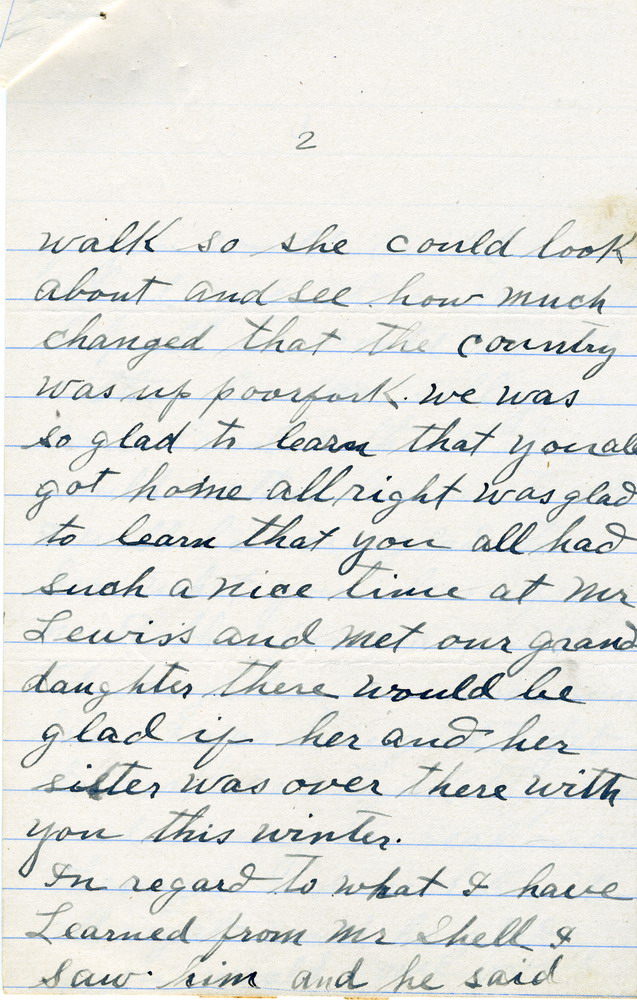 2
walk so she could look
about and see how much
changed that the country
was up poorfork. we was
so glad to learn that you all
got home all right was glad
to learn that you all had
such a nice time at Mr
Lewis's and met our grand
daughter there would be
glad if her and her
sister was over there with
you this winter.
In regard to what I have
Learned from Mr Shell I
saw him and he said